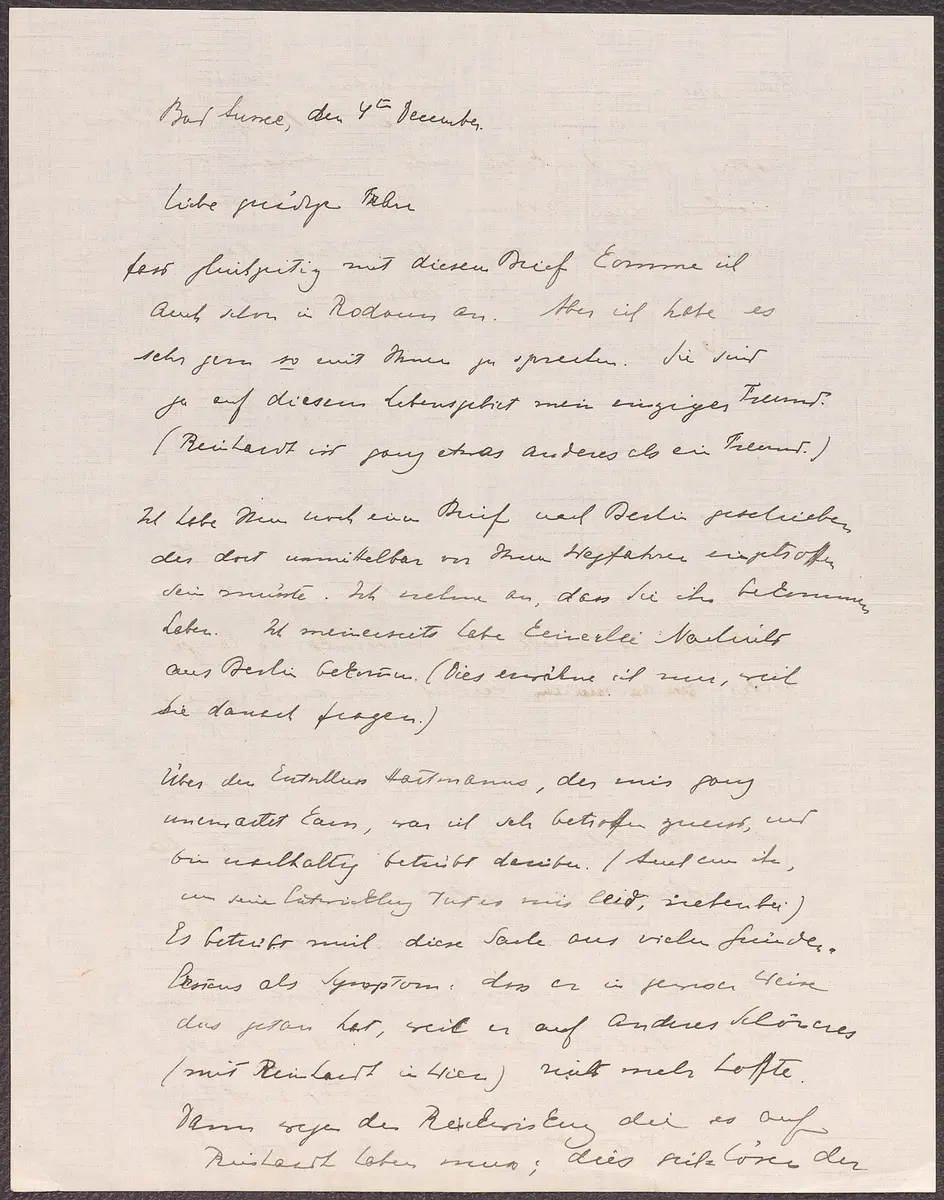 Bad Aussee, den 4ten December.
Liebe gnädige Frau
fast gleichzeitig mit diesem Brief komme ich
auch schon in Rodaun an. Aber ich habe es
sehr gern so mit Ihnen zu sprechen. Sie sind
ja auf diesem Lebensgebiet mein einziger Freund.
(Reinhardt ist ganz etwas anderes als ein Freund.)
Ich habe Ihnen noch einen Brief nach Berlin geschrieben
der dort unmittelbar vor Ihrem Wegfahren eingetroffen
sein müsste. Ich nehme an, dass Sie ihn bekommen
haben. Ich meinerseits habe keinerlei Nachricht
aus Berlin bekommen. (Dies erwähne ich nur, weil
Sie danach fragen.)
Über den Entschluss Hartmanns, der mir ganz
unerwartet kam, war ich sehr betroffen zuerst, und
bin nachhaltig betrübt darüber. (Auch um ihn,
um seine Entwicklung tut es mir leid, nebenbei)
Es betrübt mich diese Sache aus vielen Gründen.
Erstens als Symptom: dass er in gewisser Weise
das getan hat, weil er auf anderes Schöneres
(mit Reinhardt in Wien) nicht mehr hoffte.
Dann wegen der Rückwirkung die es auf
Reinhardt haben muss; dies sich lösen der